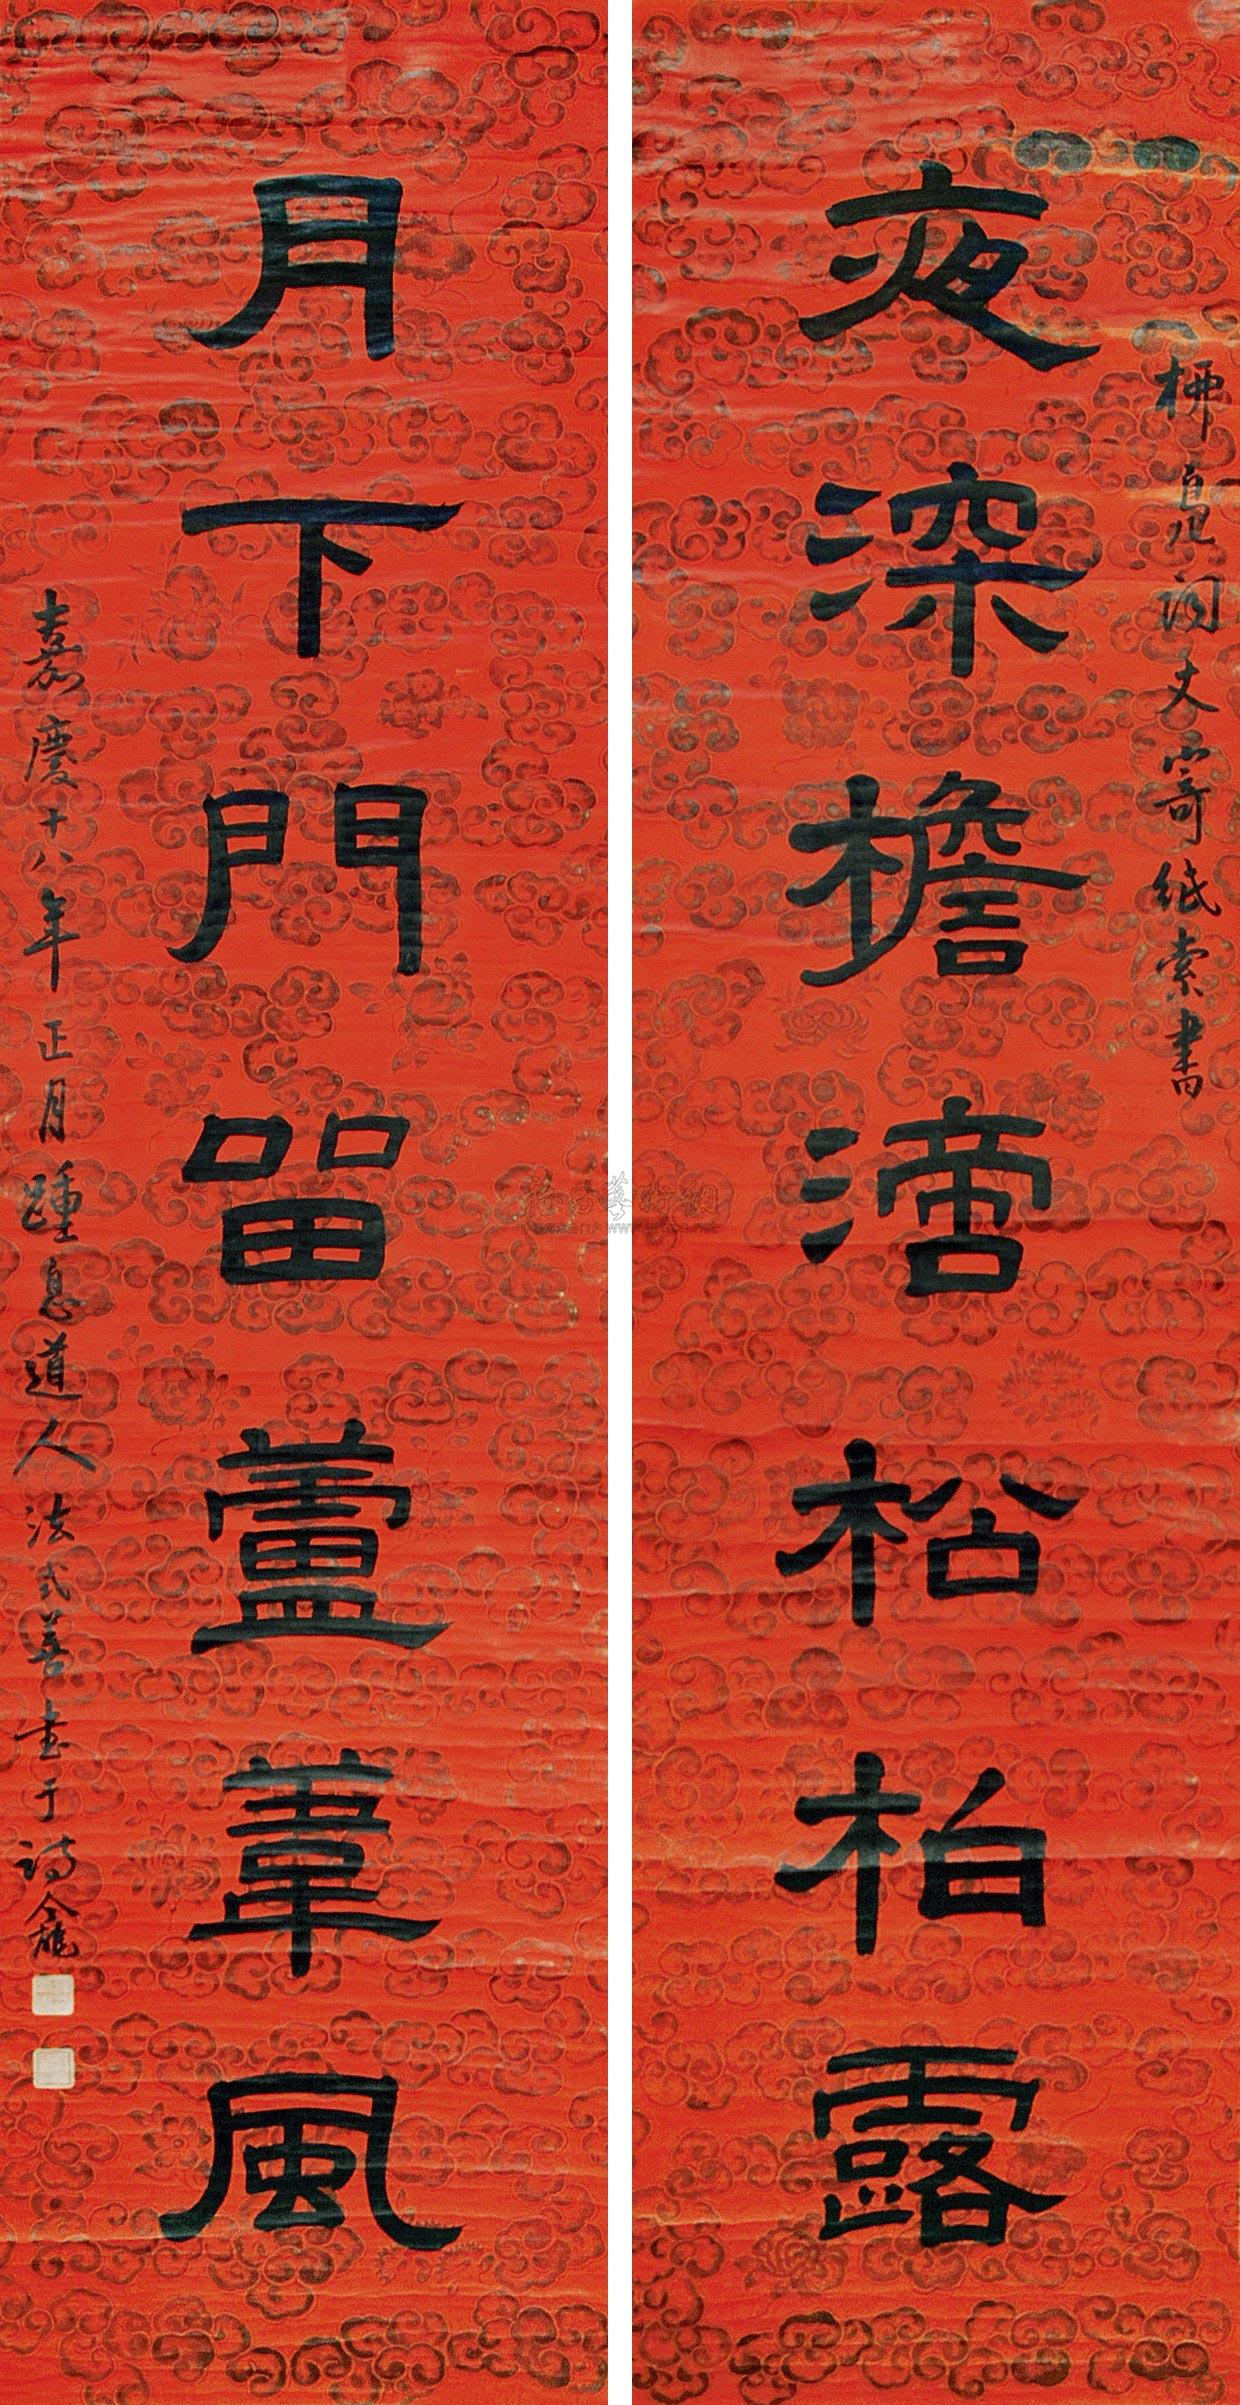 夜深檐滴松柏露
寄紙索書
月下門留蘆葦風
嘉慶十八年正月踵息道人法式善書于詩龕